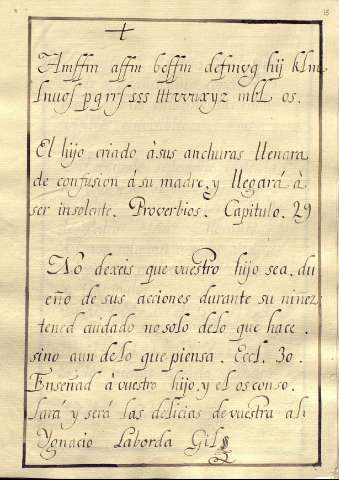 15
Amffm affm bcffm defmvg hij klm
lnuos pqrrſ sss ttt vvuxyz mbl os.
El hijo criado à sus anchuras llenara
de confusion á su madre, y llegará à
ser insolente. Proverbios. Capitulo. 29
No dexeis que vuestro hijo sea. du
eño de sus acciones durante su niñez;
tened cuidado no solo de lo que hace.
sino aun de lo que piensa. Eccl. 30.
Enseñad à vuestro hijo, y el os conso.
lará y será las delicias de vuestra al.
Ygnacio Laborda Gil